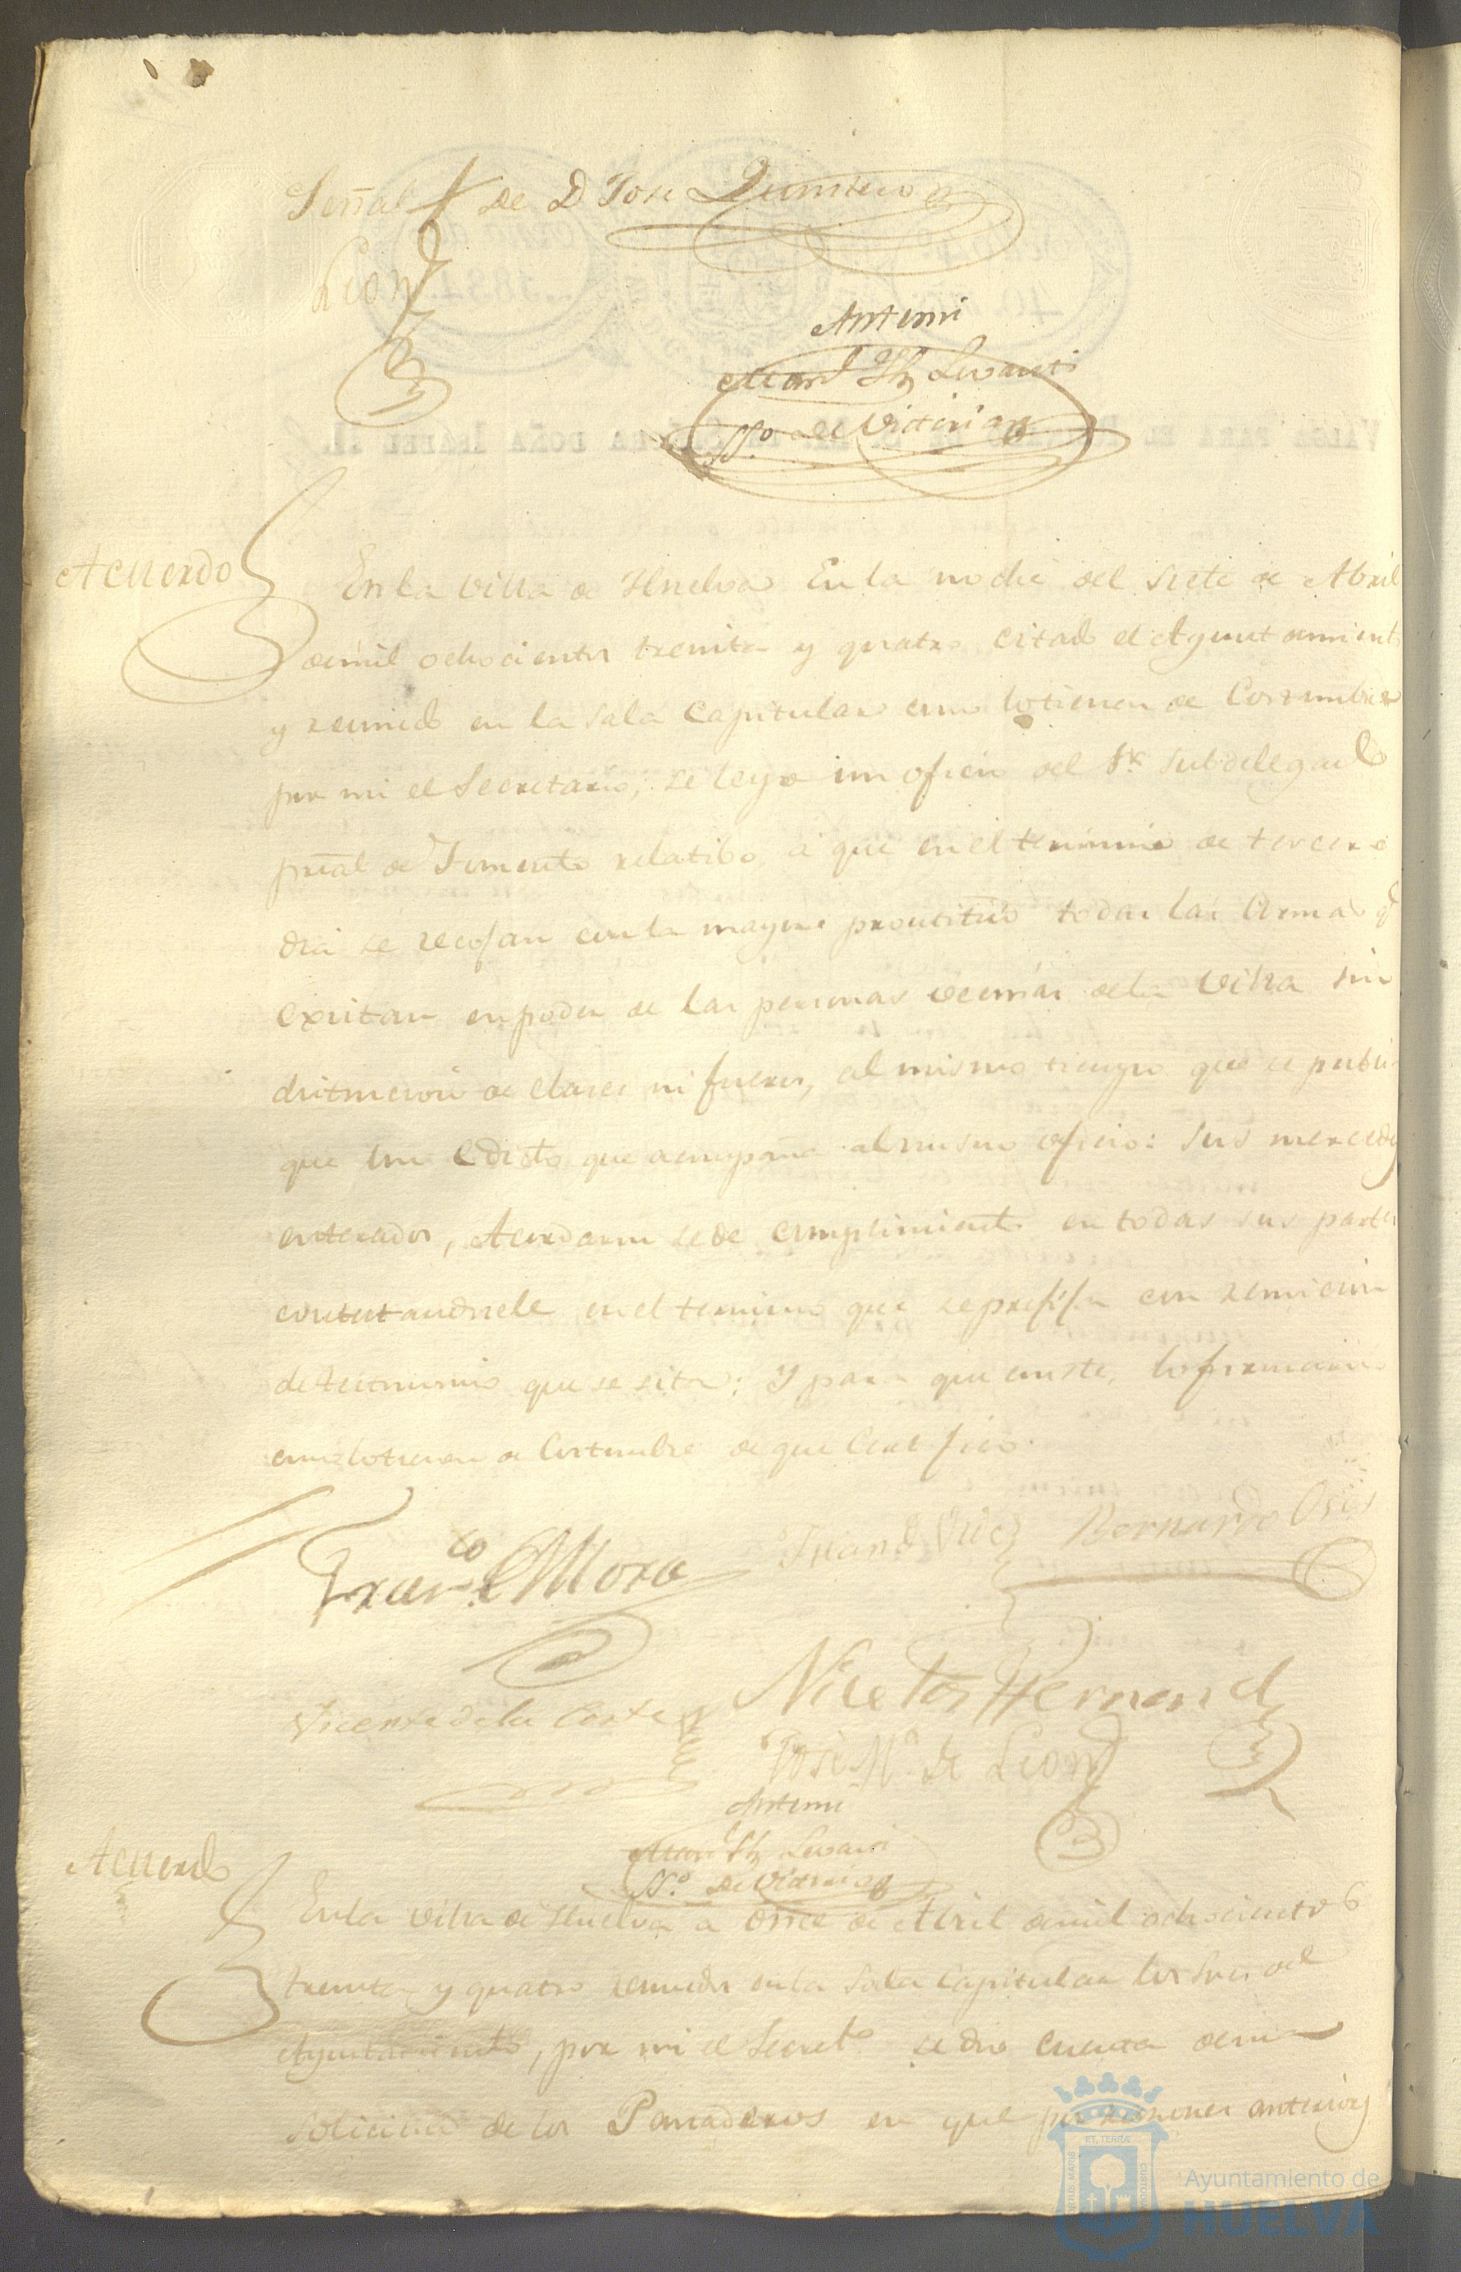 Señal + de D Jose Quintero
Leon
Ante mi
de Victoria
Acuerdo
En la villa de Huelva En la noche del siete de Abril
de mil ochocientos treinta y quatro citado el Ayuntamiento
y reunido en la sala Capitular como lo tienen de Costumbre
por mi el Secretario, se leyo un oficio del Sr. Subdelegado
pral de Fomento relatibo a que en el termino de tercero
dia se recojan con la mayor prontitud todas las Armas q.
existan en poder de las personas vecinas de la Villa sin
distincion de clases ni fueros, al mismo tiempo que se publi
que un Edicto que acompaña al mismo oficio: sus mercedes
enterados, Acordaron se de cumplimiento en todas sus partes
contestandosele en el termino que se prefija con remicion
de testimonio que se cita: Y para que conste, lo firmaron
como lo tienen de Costumbre de que Certifico.
Fran.co Mora Juan Bernardo
Vicente de la Corte Nicetos Hernand
José M.a de Leon
Ante mi
de Victoria
Acuerdo
En la villa de Huelva a once de Abril de mil ochocientos
treinta y quatro reunidos en la sala Capitular los Sres del
Ayuntamiento, por mi el Secret.o se dio cuenta de una
solicitud de los Panaderos en que por razones
Ayuntamiento de
HUELVA